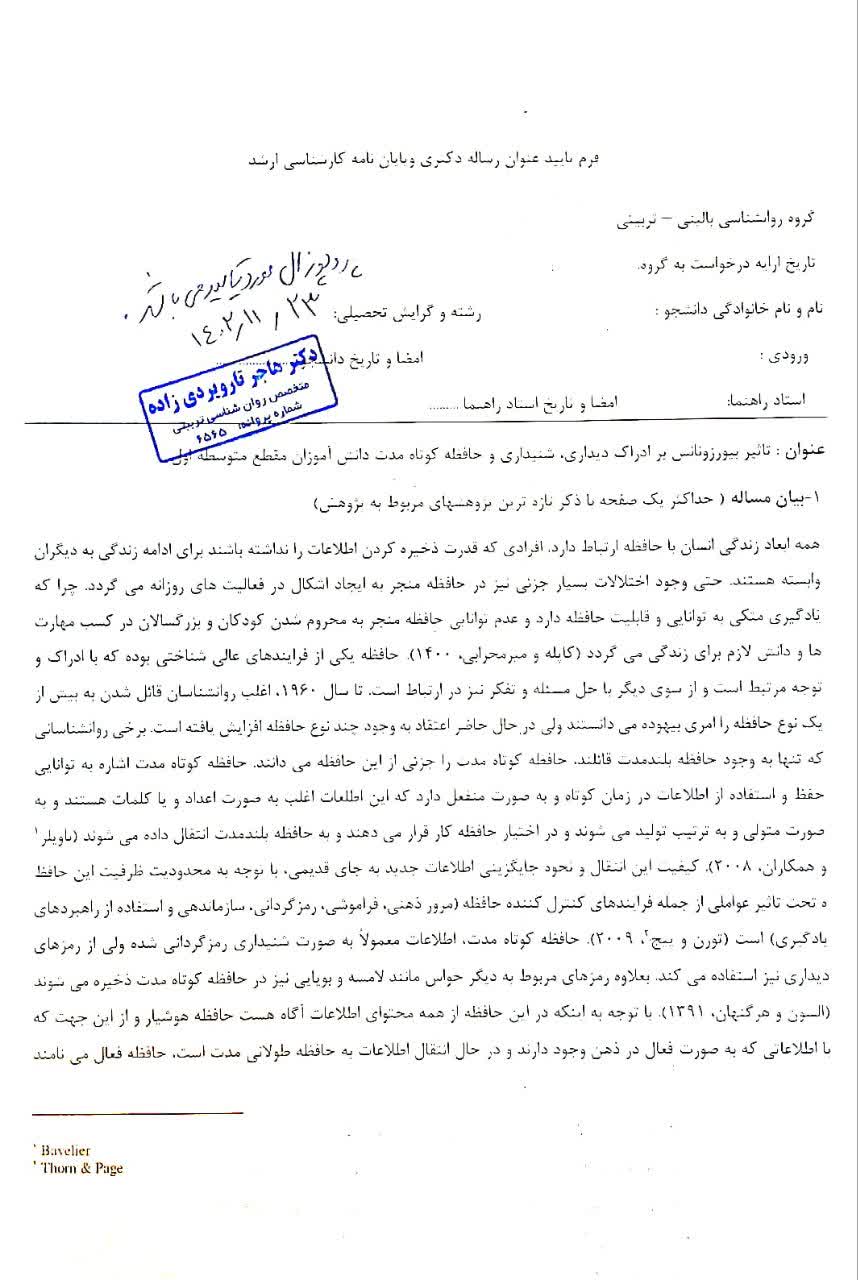 فرم تایید عنوان رساله دکتری و پایان نامه کارشناسی ارشد
گروه روانشناسی بالینی – تربیتی
تاریخ ارایه درخواست به گروه:
پروپوزال مورد تایید می باشد.
نام و نام خانوادگی دانشجو : رشته و گرایش تحصیلی:
۱۴۰۲/۱۱/۲۳
ورودی : امضا و تاریخ دانشجو
دکتر هاجر تارویردی زاده
متخصص روان شناسی تربیتی
شماره پروانه: ۶۵۶۵
استاد راهنما: امضا و تاریخ استاد راهنما.........
عنوان : تاثیر بیورزونانس بر ادراک دیداری، شنیداری و حافظه کوتاه مدت دانش آموزان مقطع متوسطه اول
۱-بیان مساله ( حداکثر یک صفحه با ذکر تازه ترین پژوهشهای مربوط به پژوهش)
همه ابعاد زندگی انسان با حافظه ارتباط دارد. افرادی که قدرت ذخیره کردن اطلاعات را نداشته باشند برای ادامه زندگی به دیگران
وابسته هستند. حتی وجود اختلالات بسیار جزئی نیز در حافظه منجر به ایجاد اشکال در فعالیت های روزانه می گردد. چرا که
یادگیری متکی به توانایی و قابلیت حافظه دارد و عدم توانایی حافظه منجر به محروم شدن کودکان و بزرگسالان در کسب مهارت
ها و دانش لازم برای زندگی می گردد (کابله و میرمحرابی، ۱۴۰۰). حافظه یکی از فرایندهای عالی شناختی بوده که با ادراک و
توجه مرتبط است و از سوی دیگر با حل مسئله و تفکر نیز در ارتباط است. تا سال ۱۹۶۰، اغلب روانشناسان قائل شدن به بیش از
یک نوع حافظه را امری بیهوده می دانستند ولی در حال حاضر اعتقاد به وجود چند نوع حافظه افزایش یافته است. برخی روانشناسانی
که تنها به وجود حافظه بلندمدت قائلند، حافظه کوتاه مدت را جزئی از این حافظه می دانند. حافظه کوتاه مدت اشاره به توانایی
حفظ و استفاده از اطلاعات در زمان کوتاه و به صورت منفعل دارد که این اطلعات اغلب به صورت اعداد و یا کلمات هستند و به
صورت متولی و به ترتیب تولید می شوند و در اختیار حافظه کار قرار می دهند و به حافظه بلندمدت انتقال داده می شوند (باویلر۱
و همکاران، ۲۰۰۸). کیفیت این انتقال و نحوه جایگزینی اطلاعات جدید به جای قدیمی، با توجه به محدودیت ظرفیت این حافظ
ه تحت تاثیر عواملی از جمله فرایندهای کنترل کننده حافظه (مرور ذهنی، فراموشی، رمزگردانی، سازماندهی و استفاده از راهبردهای
یادگیری) است (تورن و پیچ۲، ۲۰۰۹). حافظه کوتاه مدت، اطلاعات معمولاً به صورت شنیداری رمزگردانی شده ولی از رمزهای
دیداری نیز استفاده می کند. بعلاوه رمزهای مربوط به دیگر حواس مانند لامسه و بویایی نیز در حافظه کوتاه مدت ذخیره می شوند
(السون و هرگنهان، ۱۳۹۱). با توجه به اینکه در این حافظه از همه محتوای اطلاعات آگاه هست حافظه هوشیار و از این جهت که
با اطلاعاتی که به صورت فعال در ذهن وجود دارند و در حال انتقال اطلاعات به حافظه طولانی مدت است، حافظه فعال می نامند
۱ Bavelier
۲ Thorn & Page